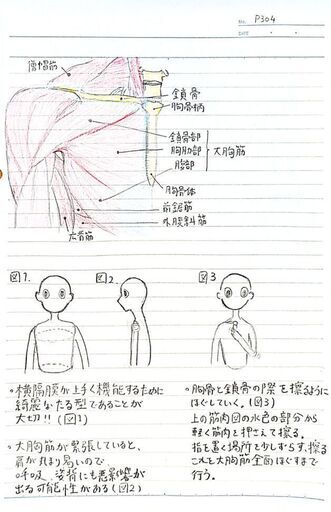 No. P304
DATE
僧帽筋
鎖骨
胸骨柄
鎖骨部
胸肋部
腹部
大胸筋
胸骨体
前鋸筋
外腹斜筋
広背筋
図1.
図2.
図3
。横隔膜が上手く機能するために
綺麗なたる型であることが
大切!!(図1)
。大胸筋が緊張していると、
肩が丸まり易いので
呼吸、姿勢にも悪影響が
出る可能性がある(図2)
。胸骨と鎖骨の際を擦るように
ほぐしていく。(図3)
上の筋肉図の水色の部分から
軽く筋肉を押さえて擦る。
指を置く場所を少しずらす、擦る
これを大胸筋全面ほぐすまで
行う。